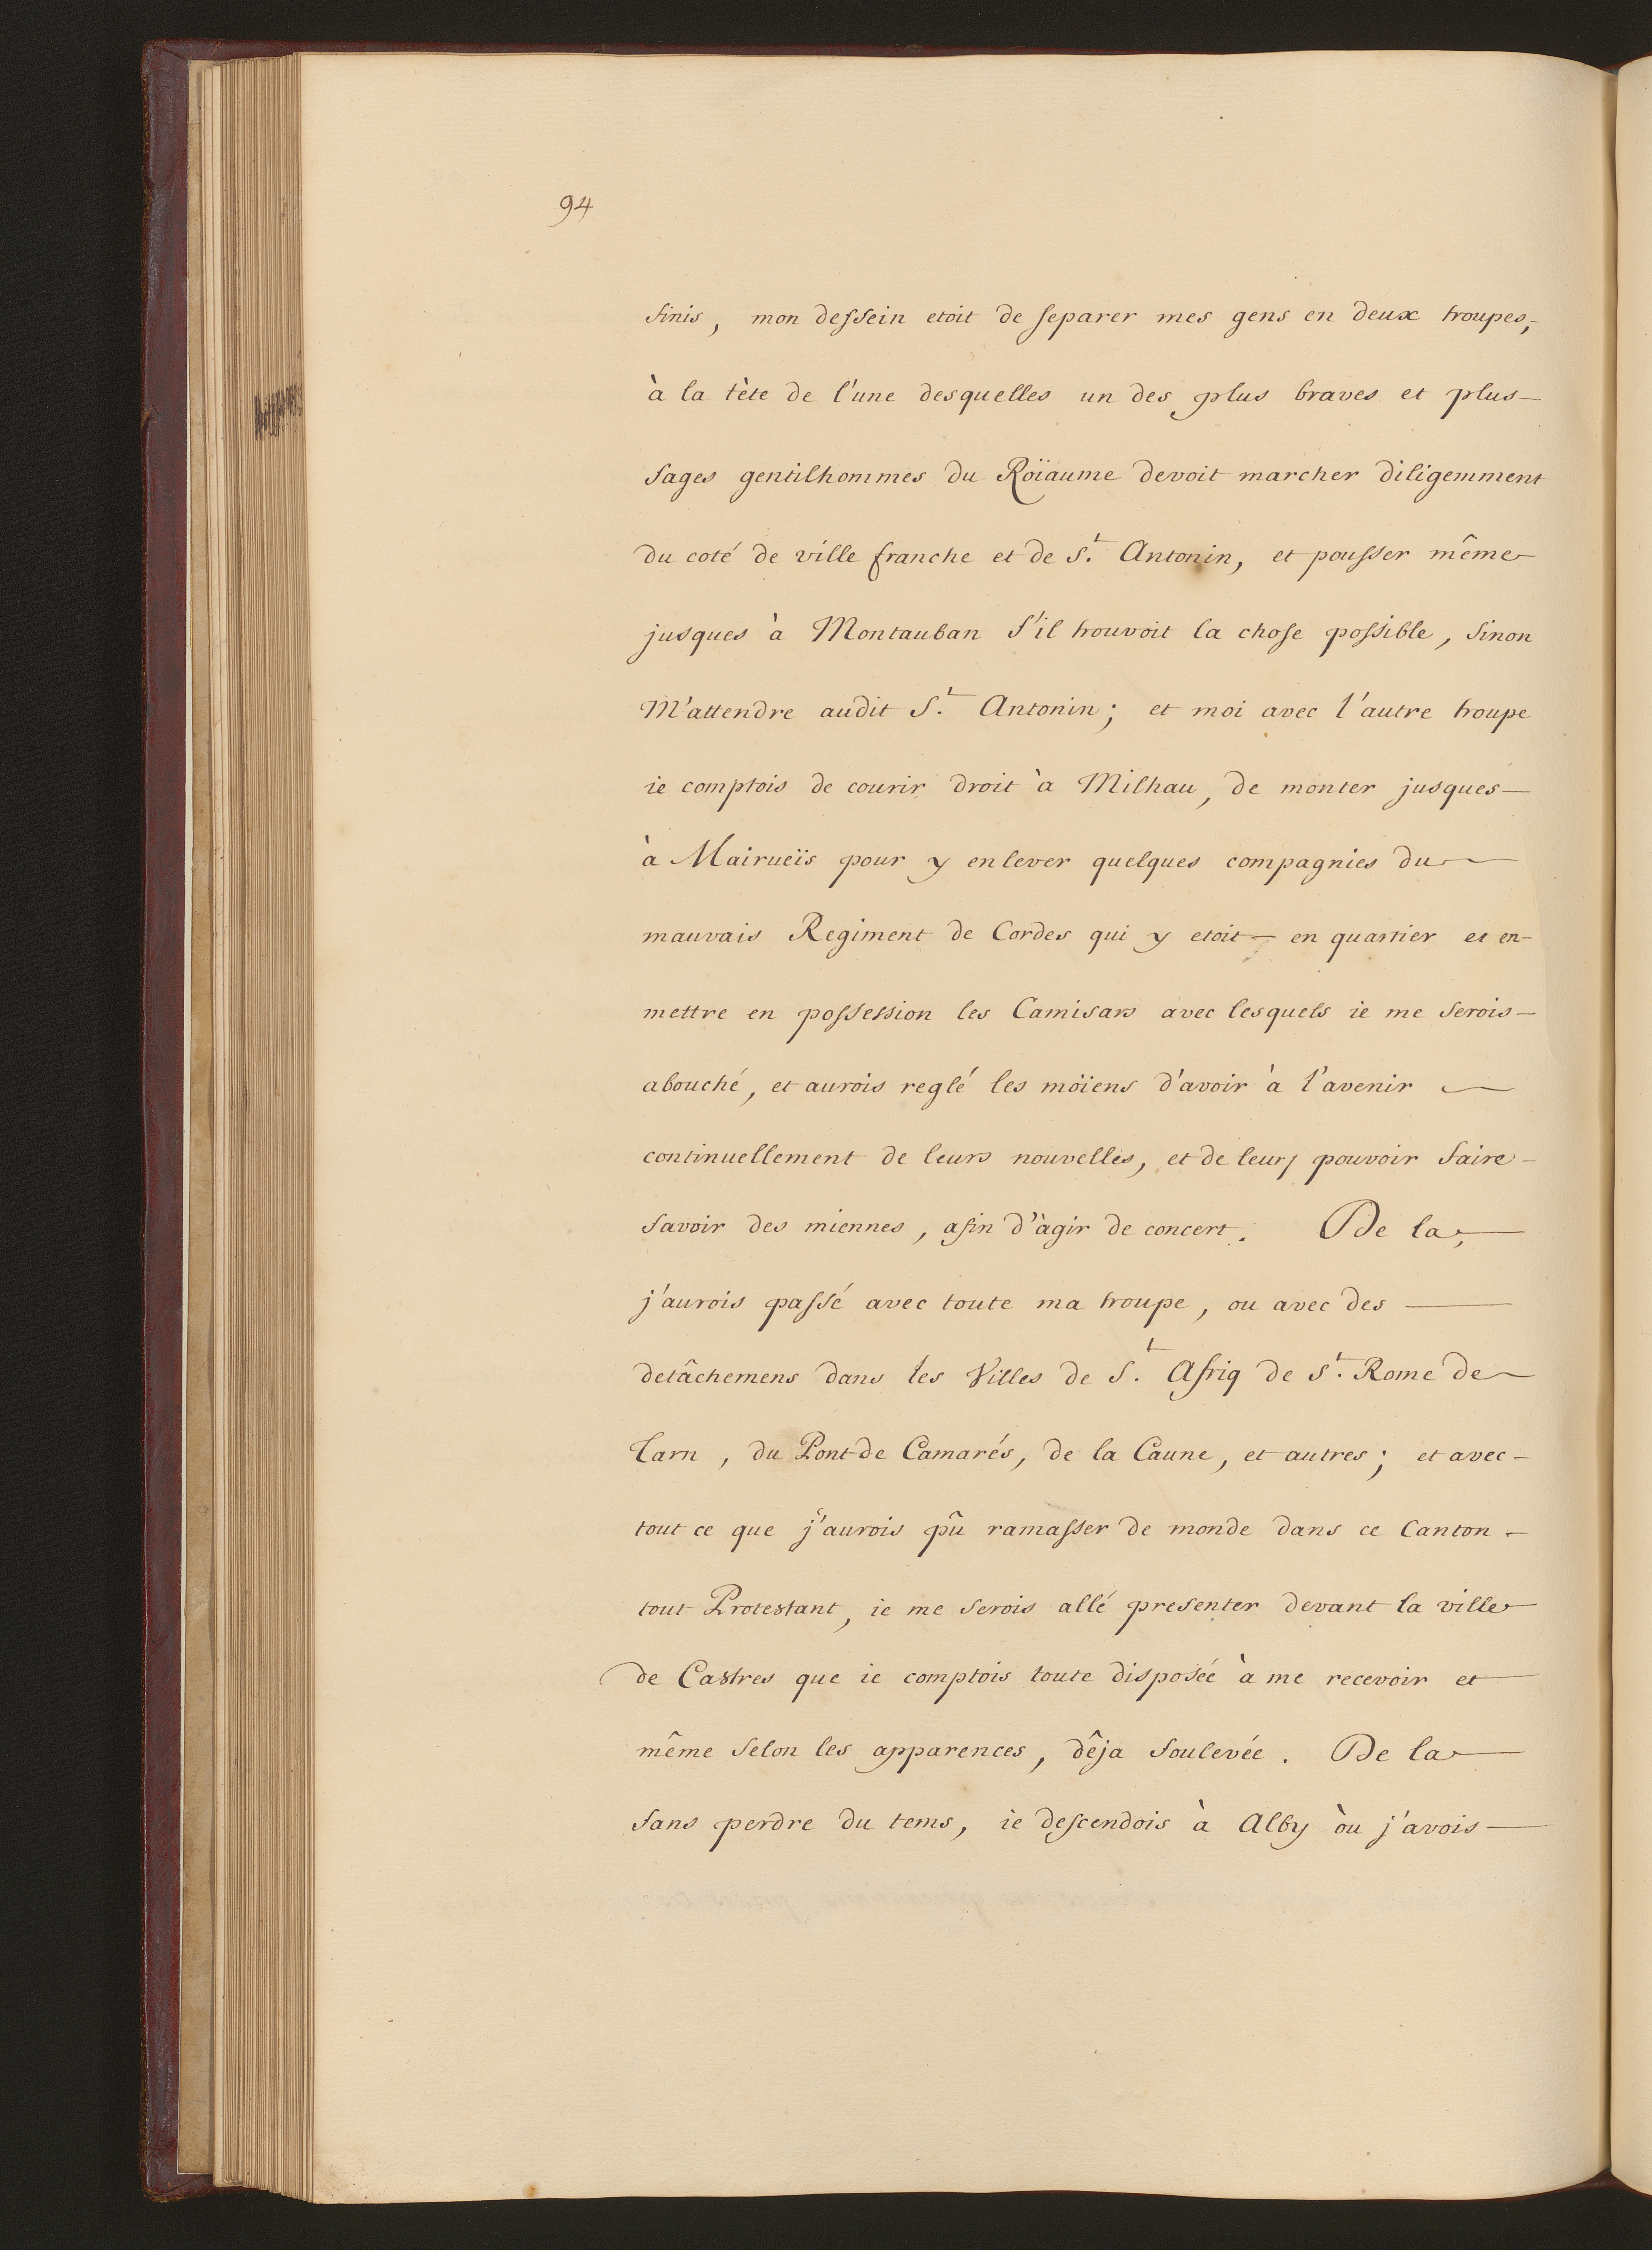 94
finis, mon dessein etoit de separer mes gens en deux troupes,
à la tète de l'une desquelles un des plus braves et plus
sages gentilhommes du Roïaume devoit marcher diligemment
du coté de ville franche et de St. Antonin, et pousser même
jusques à Montauban s'il trouvoit la chose possible, sinon
M'attendre audit St. Antonin; et moi avec l'autre troupe
ie comptois de courir droit à Milhau, de monter jusques
à Mairueïs pour y enlever quelques compagnies du
mauvais Regiment de Cordes qui y etoit en quartier et en
mettre en possession les Camisars avec lesquels ie me serois
abouché, et aurois reglé les moïens d'avoir à l'avenir
continuellement de leurs nouvelles, et de leur pouvoir faire
savoir des miennes, afin d'àgir de concert. De la,
j'aurois passé avec toute ma troupe, ou avec des
detâchemens dans les Villes de St. Afriq de St. Rome de
Tarn, du Pont de Camarés, de la Caune, et autres; et avec
tout ce que j'aurois pû ramasser de monde dans ce Canton
tout Protestant, ie me serois allé presenter devant la ville
de Castres que ie comptois toute disposée à me recevoir et
même selon les apparences, dêja soulevée. De la
sans perdre du tems, ie descendois à Alby òu j'avois